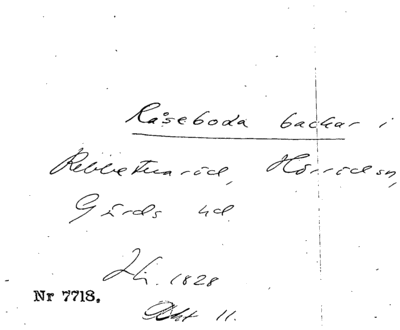 Råseboda backar i
Rebbetuaröd, Hörröds sn,
Gärds hd.
Hs. 1828
Akt 11.
Nr 7718.